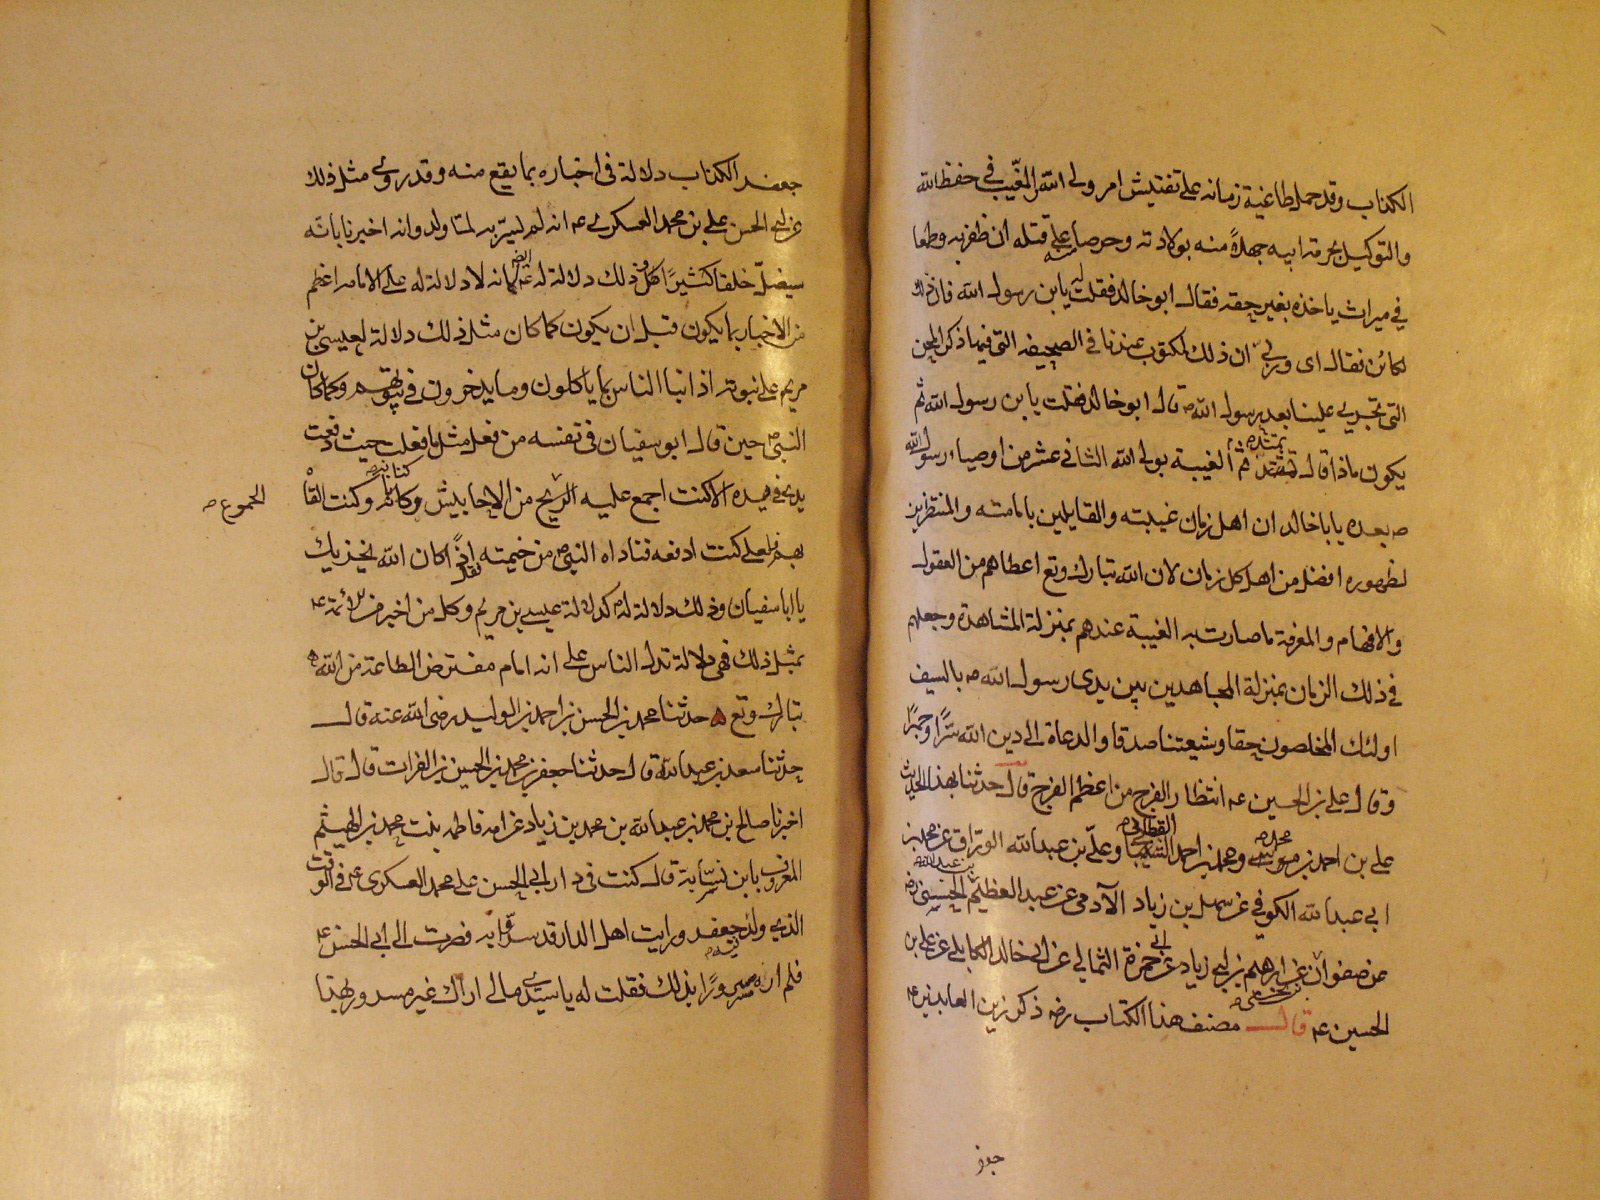 الكذاب وقد حمل طاغية زمانه على تفتيش امر ولى الله المغيّب فى حفظ الله
والتوكيل بحرمة ابيه جهلاً منه بولادته وحرصا منه على قتله ان ظفر به وطمعا
فى ميراث ياخذه بغير حقه فقال ابو خالد فقلت له يابن رسول الله فان ذلك
لكائن فقال اى وربى ان ذلك لمكتوب عندنا فى الصحيفه التى فيها ذكر المحن
التى تجرى علينا بعد رسول الله ص قال ابو خالد فقلت يا بن رسول الله ثم
يكون ماذا قال ثم تمتد الغيبة بولى الله الثانى عشر من اوصياء رسول الله
ص بعده يابا خالد ان اهل زمان غيبته والقايلين بامامته والمنتظرين
لظهوره افضل من اهل كل زمان لان الله تبارك وتع اعطاهم من العقول
والافهام والمعرفة ما صارت به الغيبة عندهم بمنزلة المشاهدة وجعلهم
فى ذلك الزمان بمنزلة المجاهدين بين يدى رسول الله ص بالسيف
اولئك المخلصون حقا وشيعتنا صدقا والدعاة الى دين الله سرًّا وجهرًا
وقال على بن الحسين ع انتظار الفرج من اعظم الفرج قال حدثنا بهذا الحديث
على بن احمد بن موسى ومحمد بن احمد الشيبانى وعلىّ بن عبد الله الورّاق عن محمد بن
ابى عبد الله الكوفى عن سهل بن زياد الآدمى عن عبد العظيم بن عبد الله الحسنى رض
عن صفوان عن ابرهيم بن ابى زياد عن ابى حمزة الثمالى عن ابى خالد الكابلى عن على بن
الحسين ع قال مصنف هذا الكتاب رضه ذكر زين العابدين ع
جعفر
جعفر الكذاب دلالة فى اخباره بما يقع منه وقد روى مثل ذلك
عن ابى الحسن على بن محمد العسكرى ع انه لم يسرّ به لمّا ولد وانه اخبرنا بانّه
سيضلّ خلقا كثيرًا كل ذلك دلالة له ع ايضا لانه لا دلالة له على الامامه اعظم
من الاخبار بما يكون قبل ان يكون كما كان مثل ذلك دلالة لعيسى بن
مريم على نبوته اذ انبا الناس بما ياكلون وما يدخرون فى بيوتهم وكما كان
النبى ص حين قال ابو سفيان فى نفسه من فعل مثل ما فعلت حيث دفعت
يدى فى يده الا كنت اجمع عليه من الاحابيش وكنانة وكنت القاه
الجموع ص
بهم فلعلى كنت ادفعه فناداه النبى ص من خيمته فقال اذًا كان الله يخزيك
يا ابا سفيان وذلك دلالة له كدلالة عيسى بن مريم وكل من اخبر من الائمة ع
بمثل ذلك فهى دلالة تدل الناس على انه امام مفترض الطاعة من الله
تبارك وتع حدثنا محمد بن الحسن بن احمد بن الوليد رضى الله عنه قال
حدثنا سعد بن عبد الله قال حدثنا جعفر بن محمد بن الحسين بن الفرات قال قال
اخبرنا صالح بن محمد بن عبد الله بن محمد بن زياد عن امه فاطمه بنت محمد بن الهيثم
المعروف بابن نسّابة قال كنت فى دار ابى الحسن على محمد العسكرى ع فى الوقت
الذى ولد فيه جعفر ورايت اهل الدار قد سرّوا به فصرت الى ابى الحسن ع
فلم اره مسرورًا بذلك فقلت له يا سيّدى مالى اراك غير مسرور بهذا